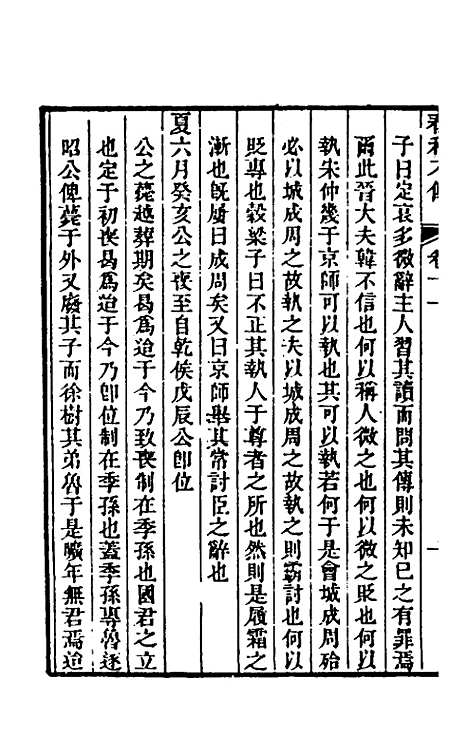 子曰定哀多微辭主人習其讀而問其傳則未知已之有罪焉
爾此晉大夫韓不信也何以稱人微之也何以微之貶也何以
執宋仲幾于京師可以執也其可以執若何于是會城成周殆
必以城成周之故執之夫以城成周之故執之則霸討也何以
貶專也穀梁子曰不正其執人于尊者之所也然則是履霜之
漸也旣屢曰成周矣又曰京師舉其常討臣之辭也
夏六月癸亥公之喪至自乾侯戊辰公卽位
公之薨越葬期矣曷爲迨于今乃致喪制在季孫也國君之立
也定于初喪曷爲迨于今乃卽位制在季孫也蓋季孫專魯逐
昭公俾薨于外又廢其子而徐樹其弟魯于是曠年無君焉迨